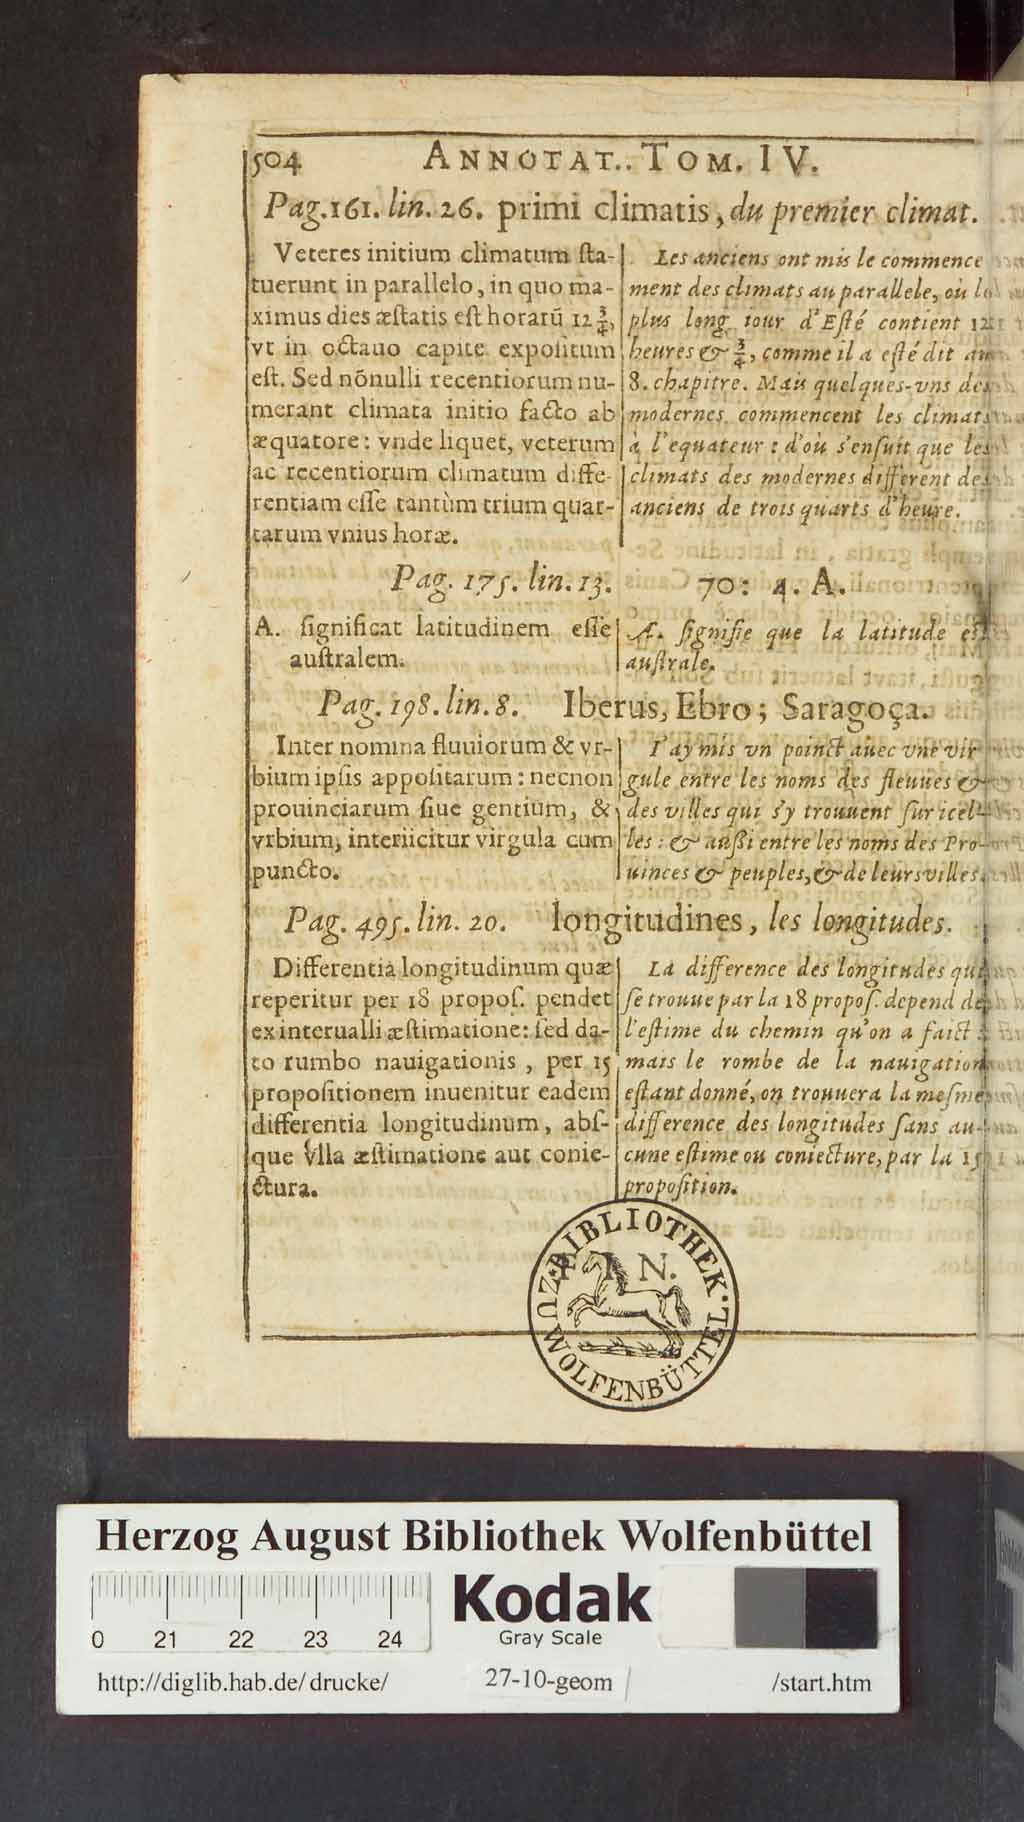 504 ANNOTAT.. TOM. IV.
Pag. 161. lin. 26. primi climatis, du premier climat.
Veteres initium climatum ſta-
tuerunt in parallelo, in quo ma-
ximus dies æſtatis eſt horarū 12 3/4,
vt in octauo capite expoſitum
eſt. Sed nõnulli recentiorum nu-
merant climata initio facto ab
æquatore: vnde liquet, veterum
ac recentiorum climatum diffe-
rentiam eſſe tantùm trium quar-
tarum vnius horæ.
Les anciens ont mis le commence
ment des climats au parallele, où le
plus long iour d'Eſté contient 12
heures & 3/4, comme il a eſté dit au
8. chapitre. Mais quelques-vns des
modernes commencent les climats
à l'equateur: d'où s'enſuit que les
climats des modernes different des
anciens de trois quarts d'heure.
Pag. 175. lin. 13. 70: 4. A.
A. ſignificat latitudinem eſſe
auſtralem.
A. ſignifie que la latitude eſt
auſtrale.
Pag. 198. lin. 8. Iberus, Ebro; Saragoça.
Inter nomina fluuiorum & vr-
bium ipſis appoſitarum: necnon
prouinciarum ſiue gentium, &
vrbium, interiicitur virgula cum
puncto.
I'ay mis vn poinct auec vne vir
gule entre les noms des fleuues &
des villes qui s'y trouuent ſur icel-
les: & auſſi entre les noms des Pro-
uinces & peuples, & de leurs villes.
Pag. 495. lin. 20. longitudines, les longitudes.
Differentia longitudinum quæ
reperitur per 18 propoſ. pendet
ex interualli æſtimatione: ſed da-
to rumbo nauigationis, per 15
propoſitionem inuenitur eadem
differentia longitudinum, abſ-
que vlla æſtimatione aut conie-
ctura.
La difference des longitudes qui
ſe trouue par la 18 propoſ. depend de
l'eſtime du chemin qu'on a faict:
mais le rombe de la nauigation
eſtant donné, on trouuera la meſme
difference des longitudes ſans au-
cune eſtime ou coniecture, par la 15
propoſition.
BIBLIOTHEK
ZU WOLFENBÜTTEL
Herzog August Bibliothek Wolfenbüttel
Kodak
Gray Scale
0 21 22 23 24
http://diglib.hab.de/drucke/ 27-10-geom /start.htm